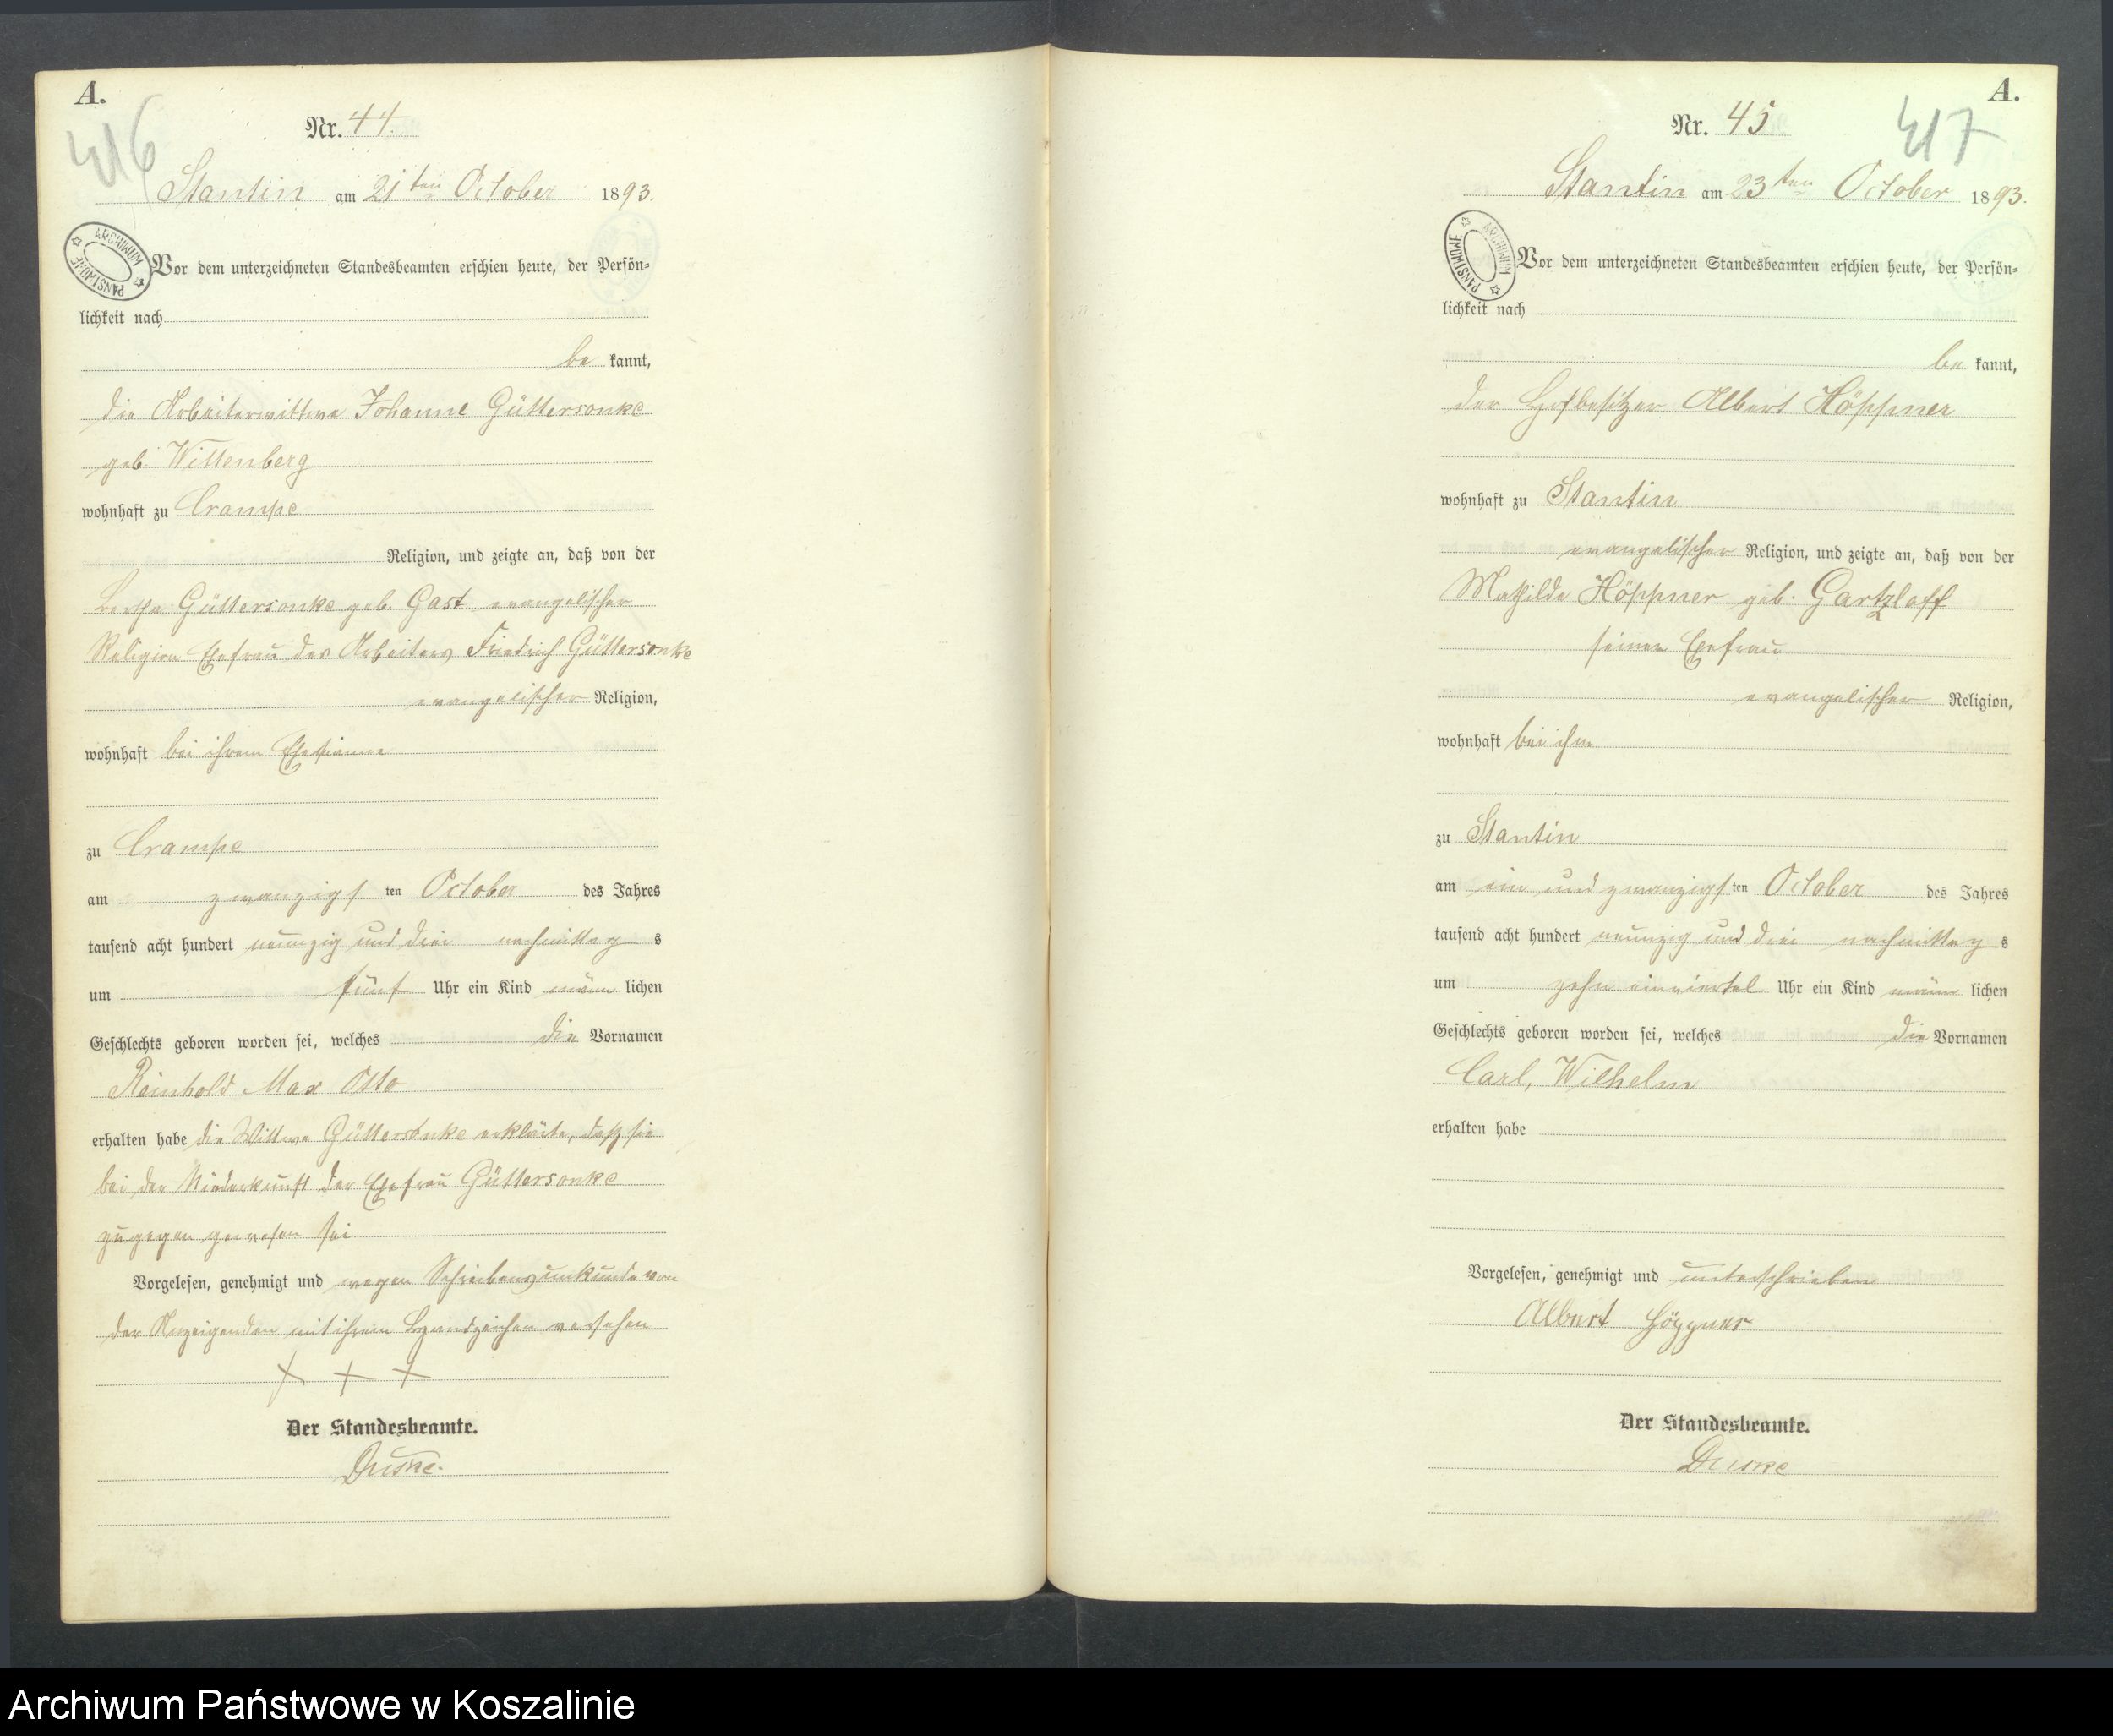 A.
416
Nr. 44.
Stantin am 21ten October 1893.
ARCHIWUM PAŃSTWOWE
Vor dem unterzeichneten Standesbeamten erschien heute, der Persön-
lichkeit nach
be kannt,
die Arbeiterwittwe Johanne Güttersonke
geb. Wittenberg
wohnhaft zu Crampe
Religion, und zeigte an, daß von der
Bertha Güttersonke geb. Gast evangelischer
Religion Ehefrau des Arbeiters Friedrich Güttersonke
evangelischer Religion,
wohnhaft bei ihrem Ehemanne
zu Crampe
am zwanzigs ten October des Jahres
tausend acht hundert neunzig und drei nachmittag s
um fünf Uhr ein Kind männ lichen
Geschlechts geboren worden sei, welches die Vornamen
Reinhold Max Otto
erhalten habe die Wittwe Güttersonke erklärte, daß sie
bei der Niederkunft der Ehefrau Güttersonke
zugegen gewesen sei
Vorgelesen, genehmigt und wegen Schreibensunkunde von
der Anzeigenden mit ihrem Handzeichen versehen
+ + +
Der Standesbeamte.
A.
417
Nr. 45
Stantin am 23ten October 1893.
ARCHIWUM PAŃSTWOWE
Vor dem unterzeichneten Standesbeamten erschien heute, der Persön-
lichkeit nach
be kannt,
der Hofbesitzer Albert Höppner
wohnhaft zu Stantin
evangelischer Religion, und zeigte an, daß von der
Mathilde Höppner geb. Gartzlaff
seiner Ehefrau
evangelischer Religion,
wohnhaft bei ihm
zu Stantin
am ein und zwanzigs ten October des Jahres
tausend acht hundert neunzig und drei nachmittag s
um zehn einviertel Uhr ein Kind männ lichen
Geschlechts geboren worden sei, welches die Vornamen
Carl, Wilhelm
erhalten habe
Vorgelesen, genehmigt und unterschrieben
Albert Höppner
Der Standesbeamte.
Archiwum Państwowe w Koszalinie